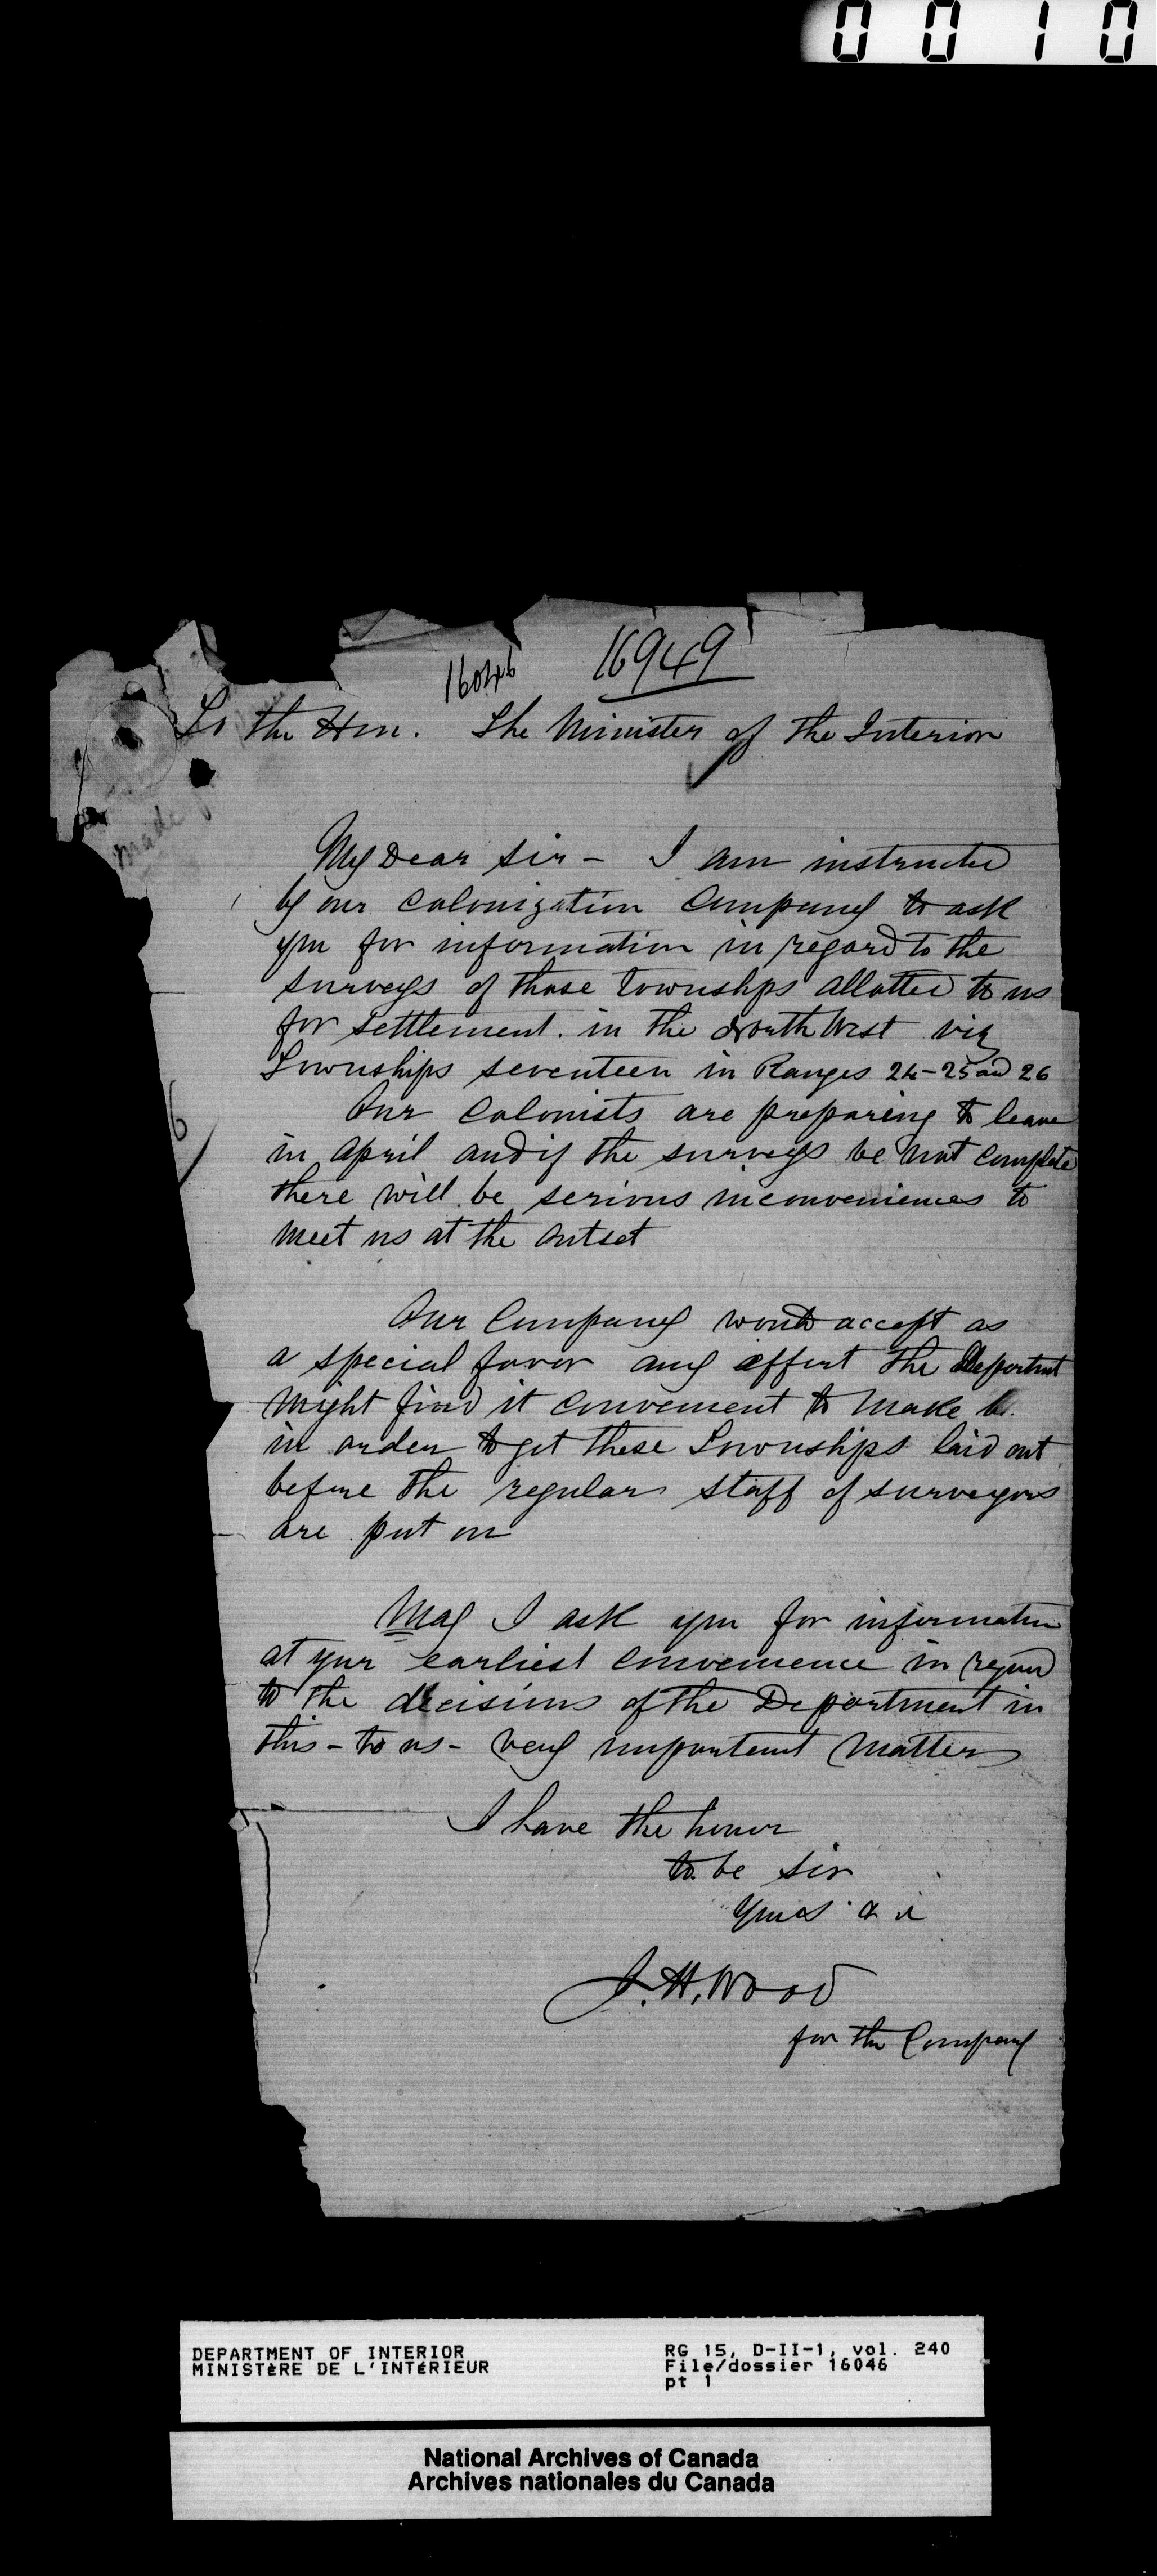 0010
16046 16949
To the Hon. The Minister of the Interior
made
My Dear Sir - I am instructed
by our Colonization Company to ask
you for information in regard to the
surveys of those Townships allotted to us
for settlement. in the North West viz
Townships seventeen in Ranges 24-25 and 26
Our Colonists are preparing to leave
in April and if the surveys be not complete
there will be serious inconveniences to
meet us at the outset
Our Company would accept as
a special favor any effort the Department
might find it convenient to make
in order to get these Townships laid out
before the regular staff of surveyors
are put on
May I ask you for information
at your earliest convenience in regard
to the decisions of the Department in
this - to us - very important matter
I have the honor
to be Sir
Yours &c
J. H. Wood
for the Company
DEPARTMENT OF INTERIOR RG 15, D-II-1, vol. 240
MINISTÈRE DE L'INTÉRIEUR File/dossier 16046
pt 1
National Archives of Canada
Archives nationales du Canada